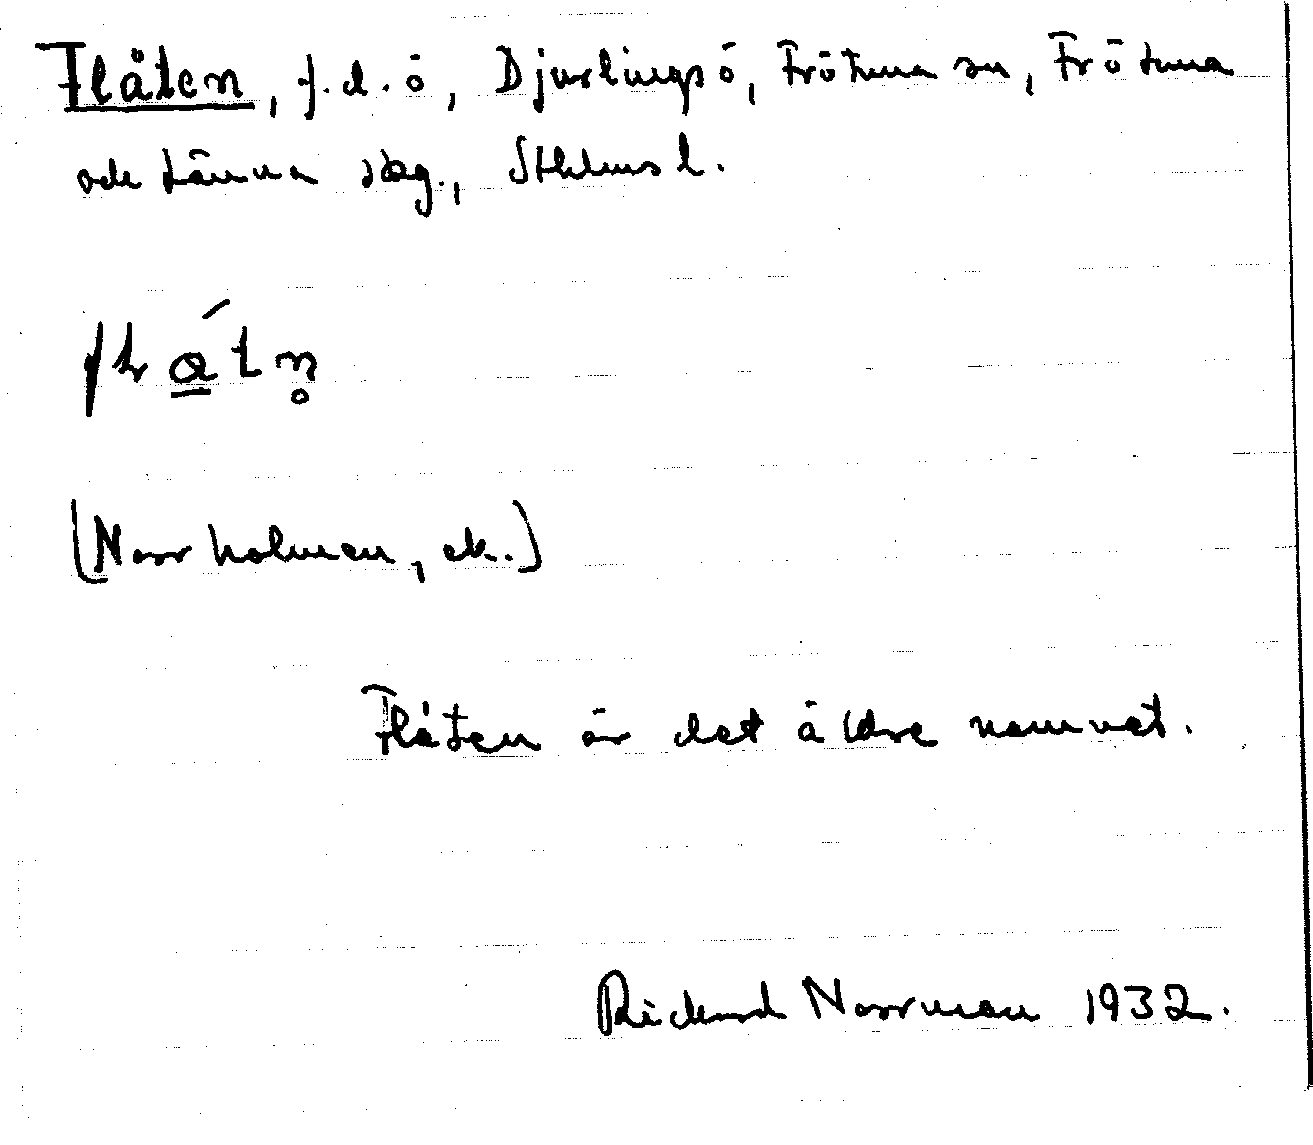 Flåten, f.d. ö, Djurlingsö, Frötuna sn, Frötuna
och Länna skg., Sthlms l.
(Norrholmen, ek.)
Flåten är det äldre namnet.
Rickard Norrman 1932.